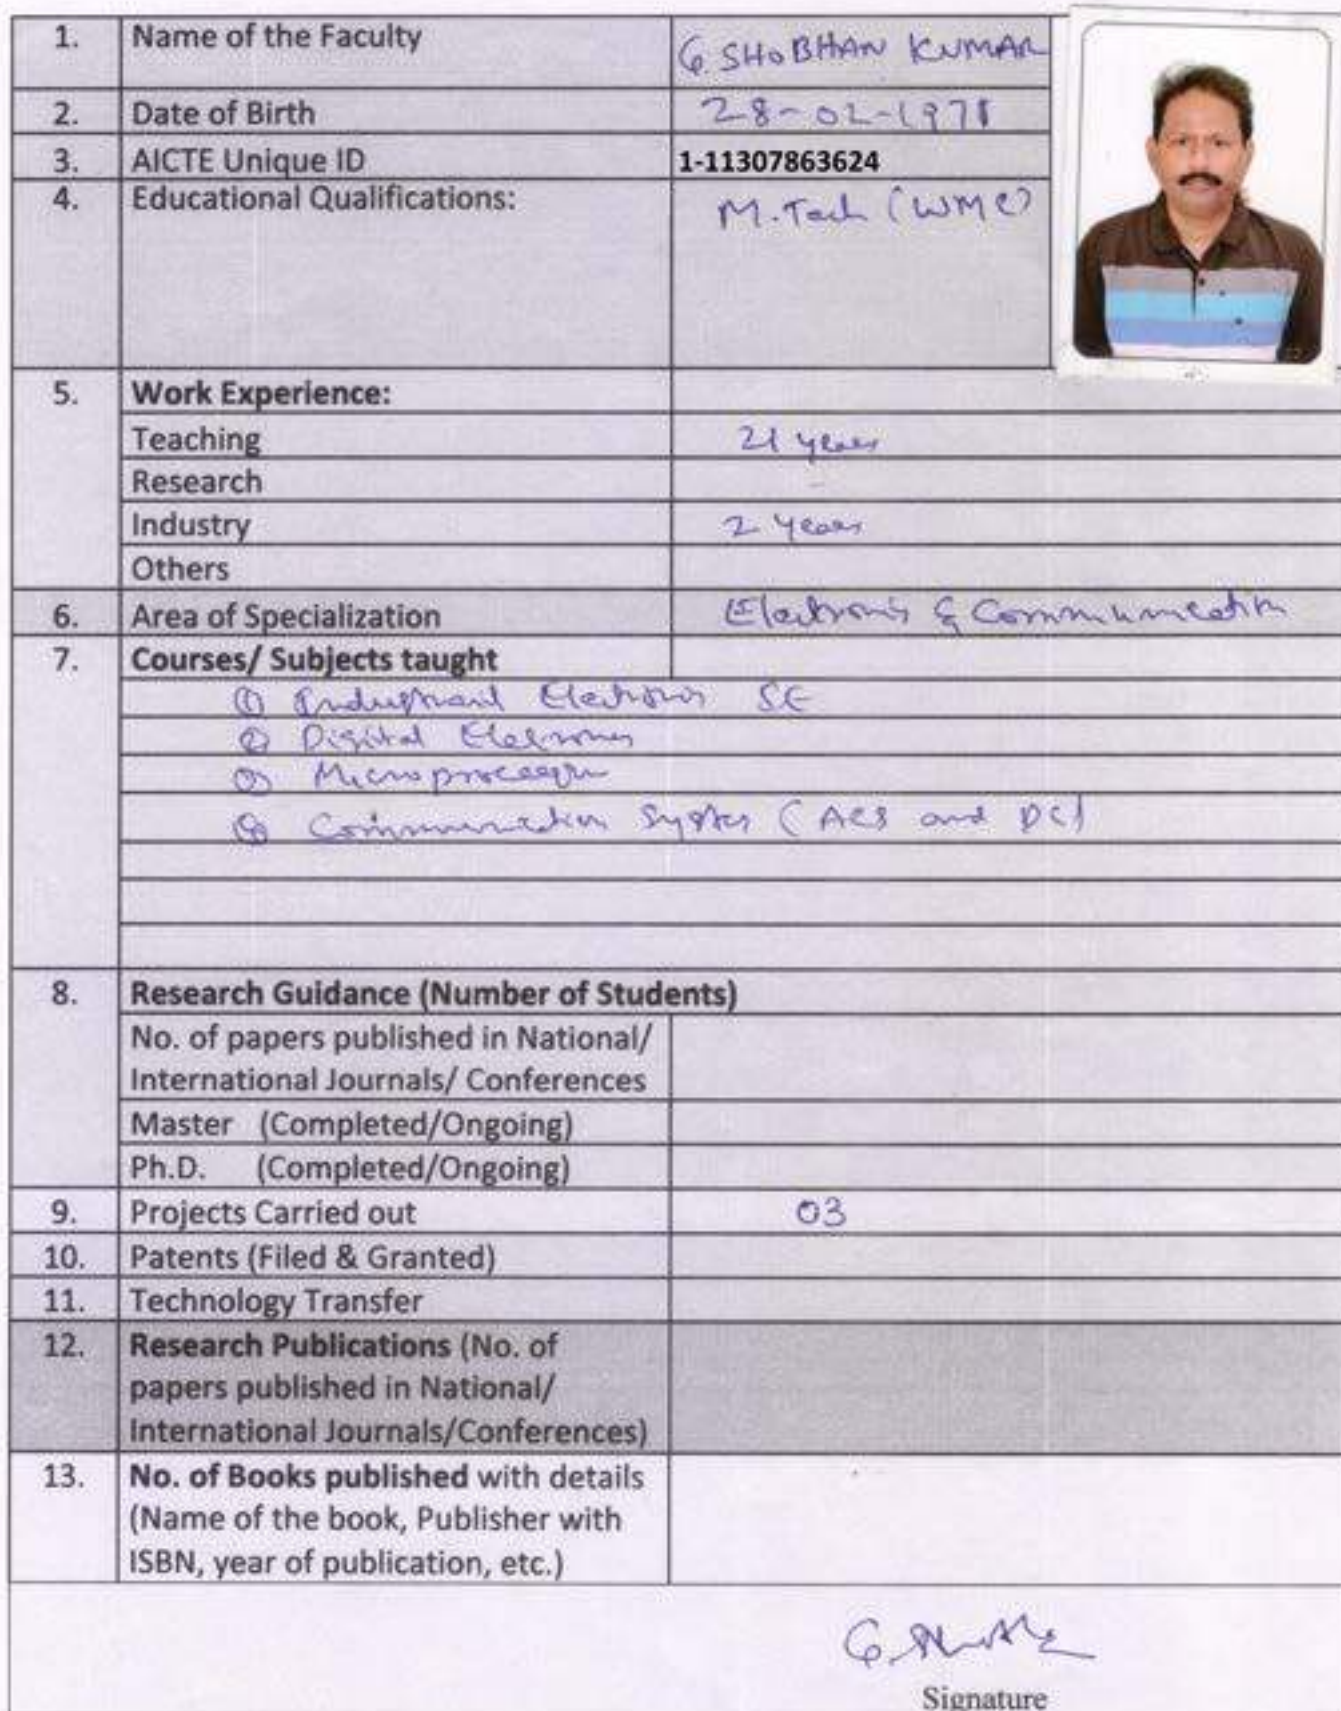 1. Name of the Faculty G. SHOBHAN KUMAR
2. Date of Birth 28-02-1971
3. AICTE Unique ID 1-11307863624
4. Educational Qualifications: M.Tech (WMC)
5. Work Experience:
Teaching 21 years
Research -
Industry 2 years
Others
6. Area of Specialization Electronics & Communication
7. Courses/ Subjects taught
① Industrial Electronics
② Digital Electronics
③ Microprocessor
④ Communication System (ACS and DC)
8. Research Guidance (Number of Students)
No. of papers published in National/
International Journals/ Conferences
Master (Completed/Ongoing)
Ph.D. (Completed/Ongoing)
9. Projects Carried out 03
10. Patents (Filed & Granted)
11. Technology Transfer
12. Research Publications (No. of
papers published in National/
International Journals/Conferences)
13. No. of Books published with details
(Name of the book, Publisher with
ISBN, year of publication, etc.)
Signature